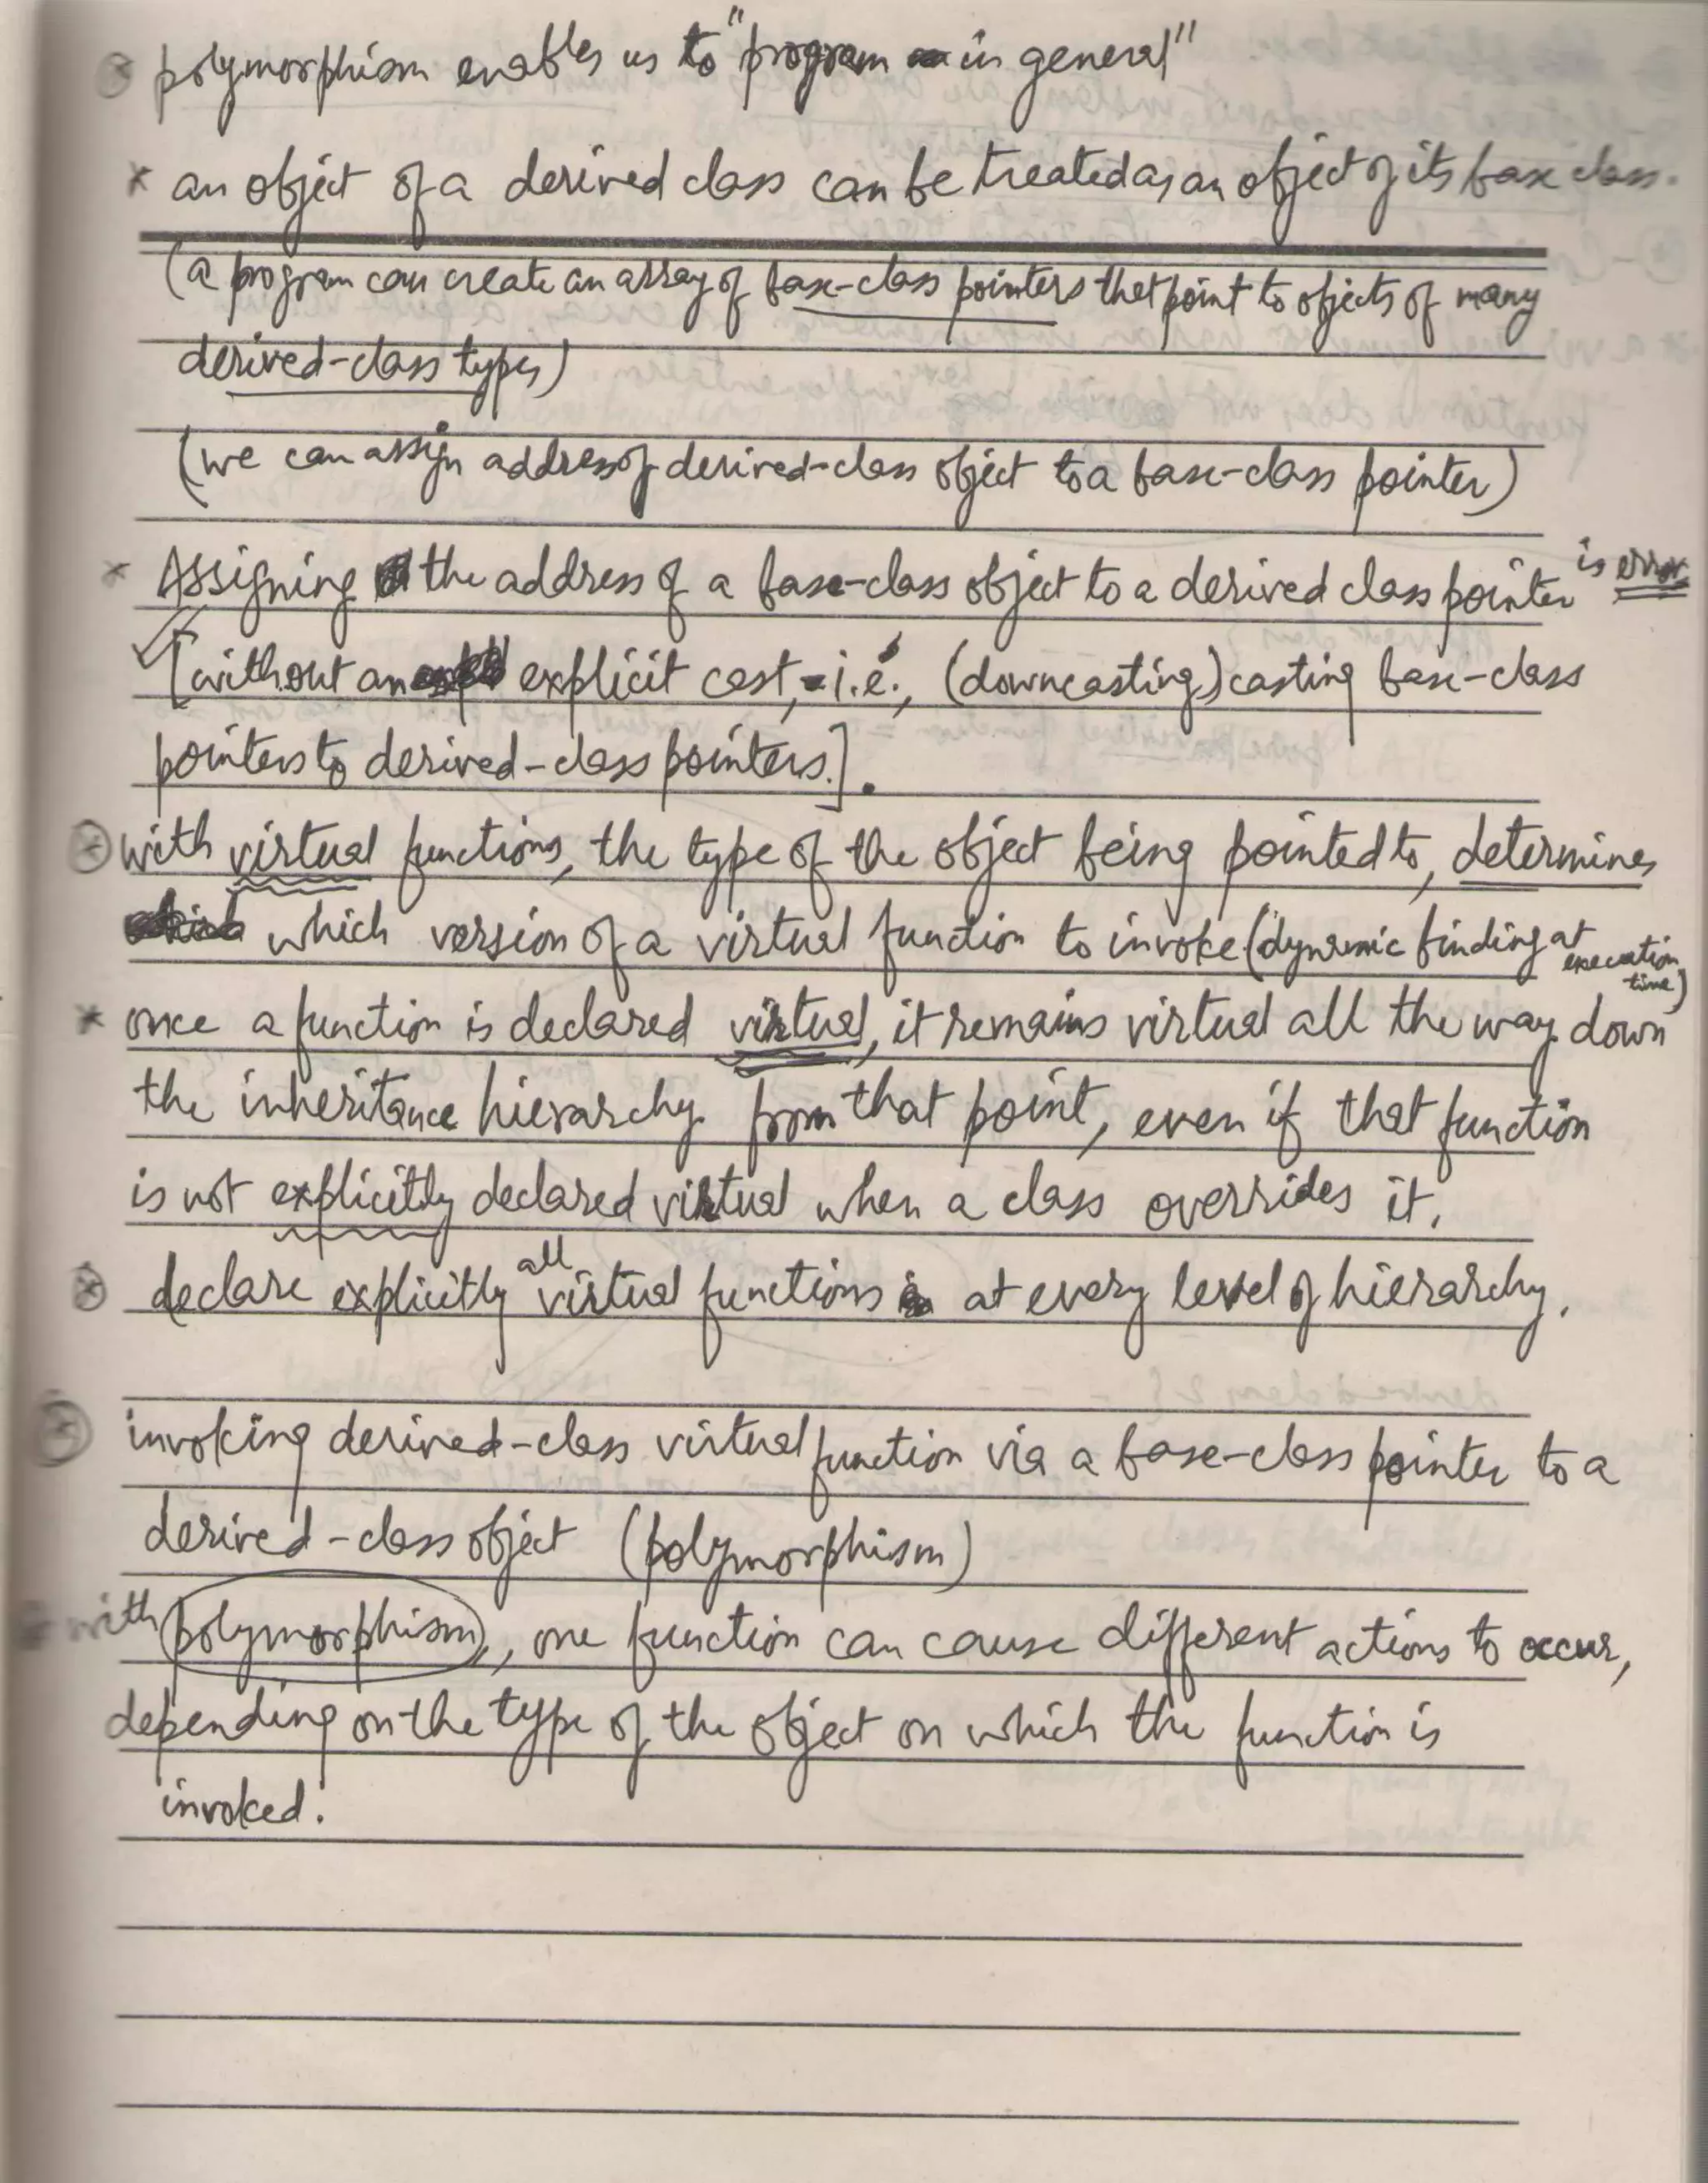 ⊛ polymorphism enables us to "program in general"
* an object of a derived class can be treated as an object of its base class.
(a program can create an array of base-class pointers that point to objects of many
derived-class types)
(we can assign address of derived-class object to a base-class pointer)
* Assigning the address of a base-class object to a derived class pointer is error
[without an explicit cast, i.e., (downcasting) casting base-class
pointers to derived-class pointers.].
⊛ with virtual functions, the type of the object being pointed to, determines
which version of a virtual function to invoke (dynamic binding at execution time)
* once a function is declared virtual, it remains virtual all the way down
the inheritance hierarchy from that point, even if that function
is not explicitly declared virtual when a class overrides it.
⊛ declare explicitly all virtual functions at every level of hierarchy.
⊛ invoking derived-class virtual function via a base-class pointer to a
derived-class object (polymorphism)
* with polymorphism, one function can cause different actions to occur,
depending on the type of the object on which the function is
invoked.